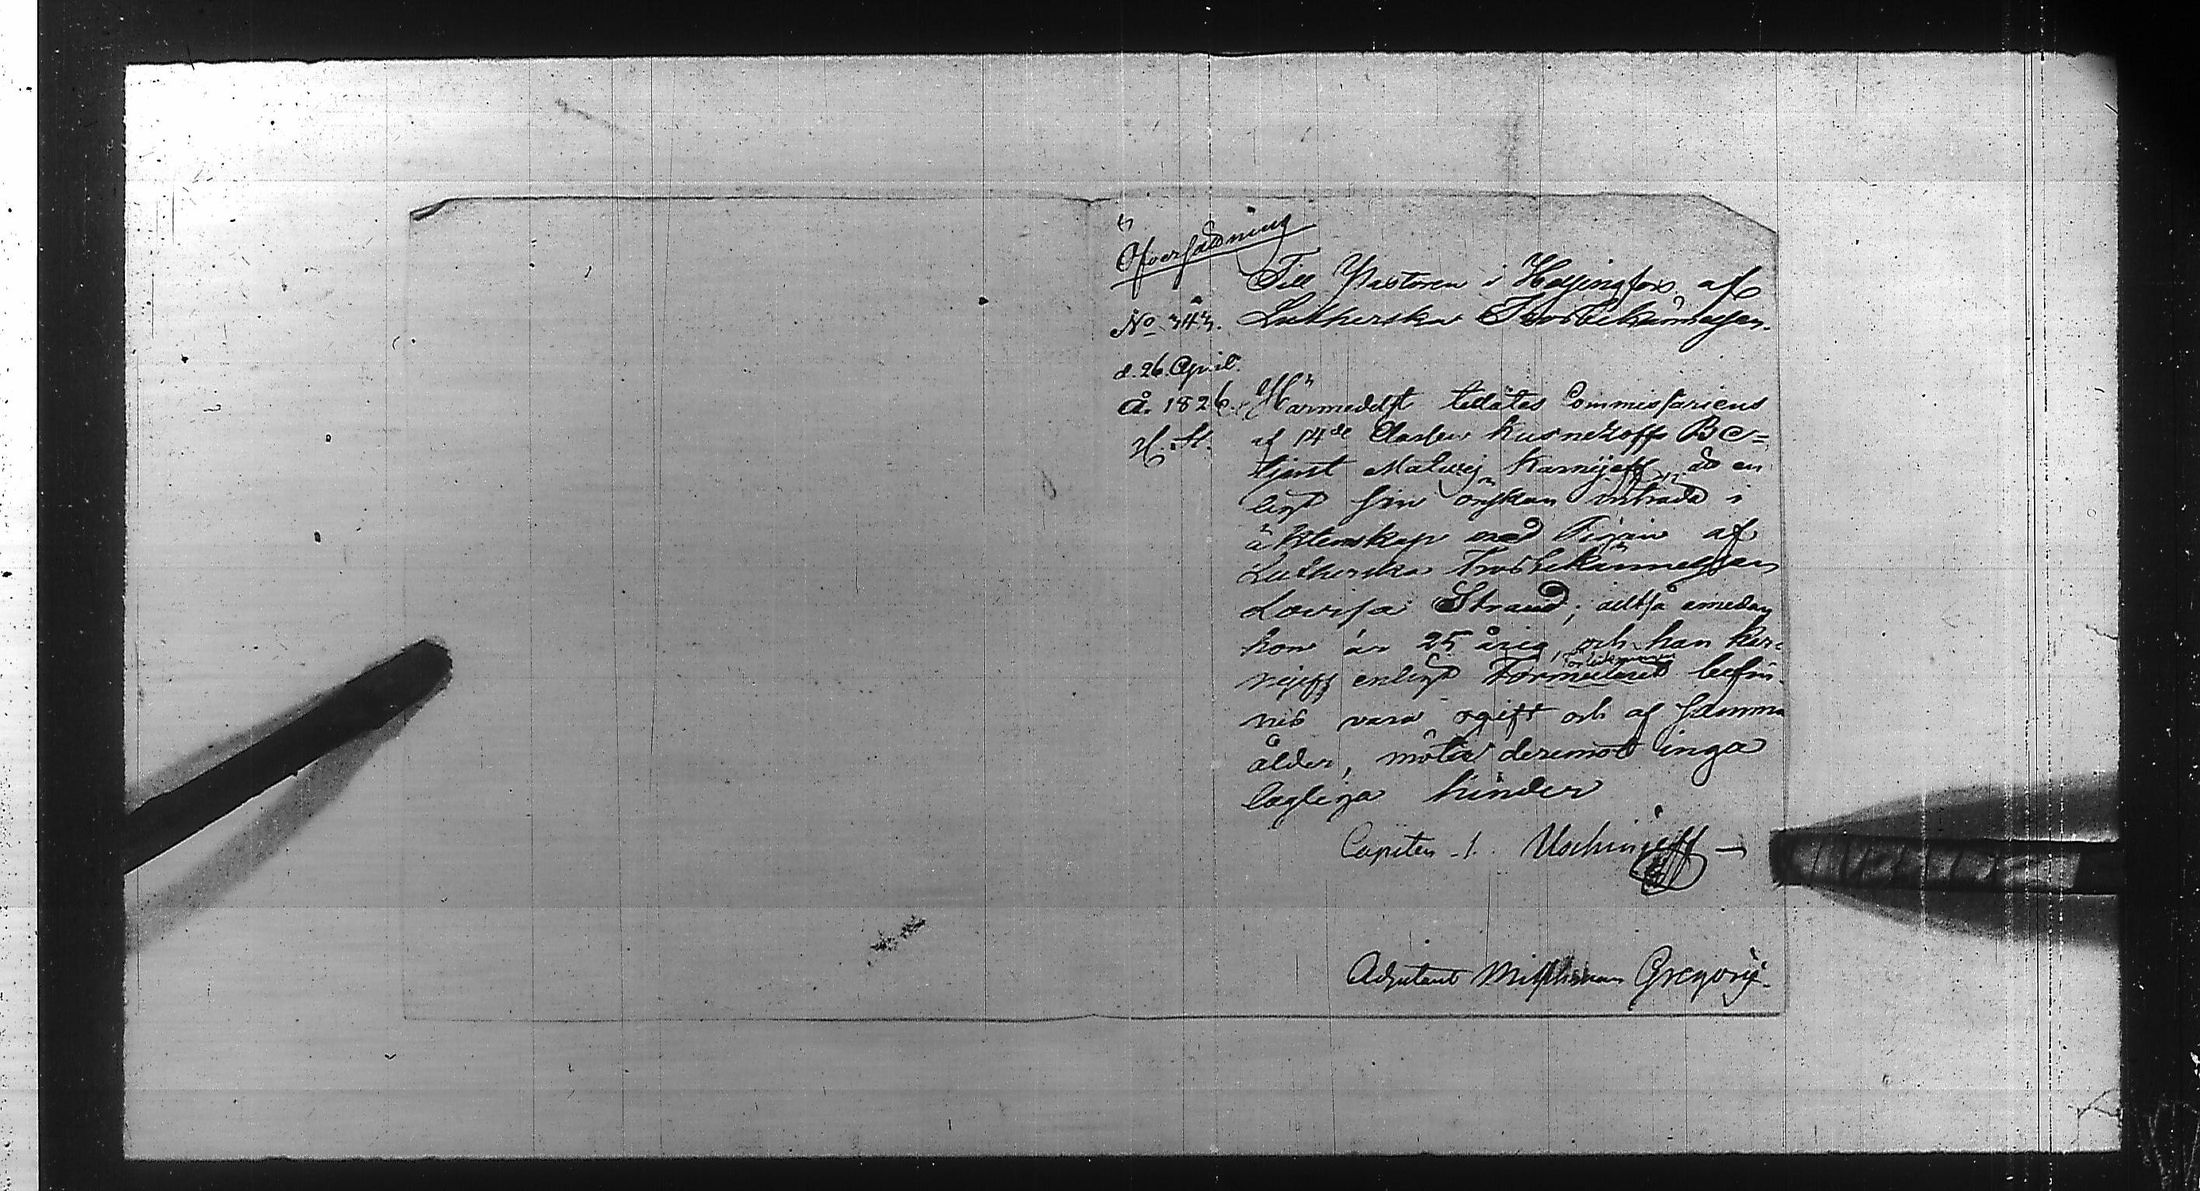 Öfversättning
Till Pastoren i Helsingfors af
Lutherska Trosbekännelsen.
No 343.
d. 26. April.
År 1826.
H. St.
Härmedelst tillåtes Commissariens
af 14de Classen Kusnetzoffs Be=
tjent Matwej Karnijeff, at en
ligt sin önskan inträda i
äktenskap med Pigan af
Lutherska Trosbekännelsen
Lovisa Strand; alltså emedan
hon är 25 årig, och han Kar-
nijeff enligt Formuleret befin-
nes vara ogift och af samma
ålder, möta deremot inga
lagliga hinder
Capiten .1. Uschinjeff
Adjutant Gregorij.